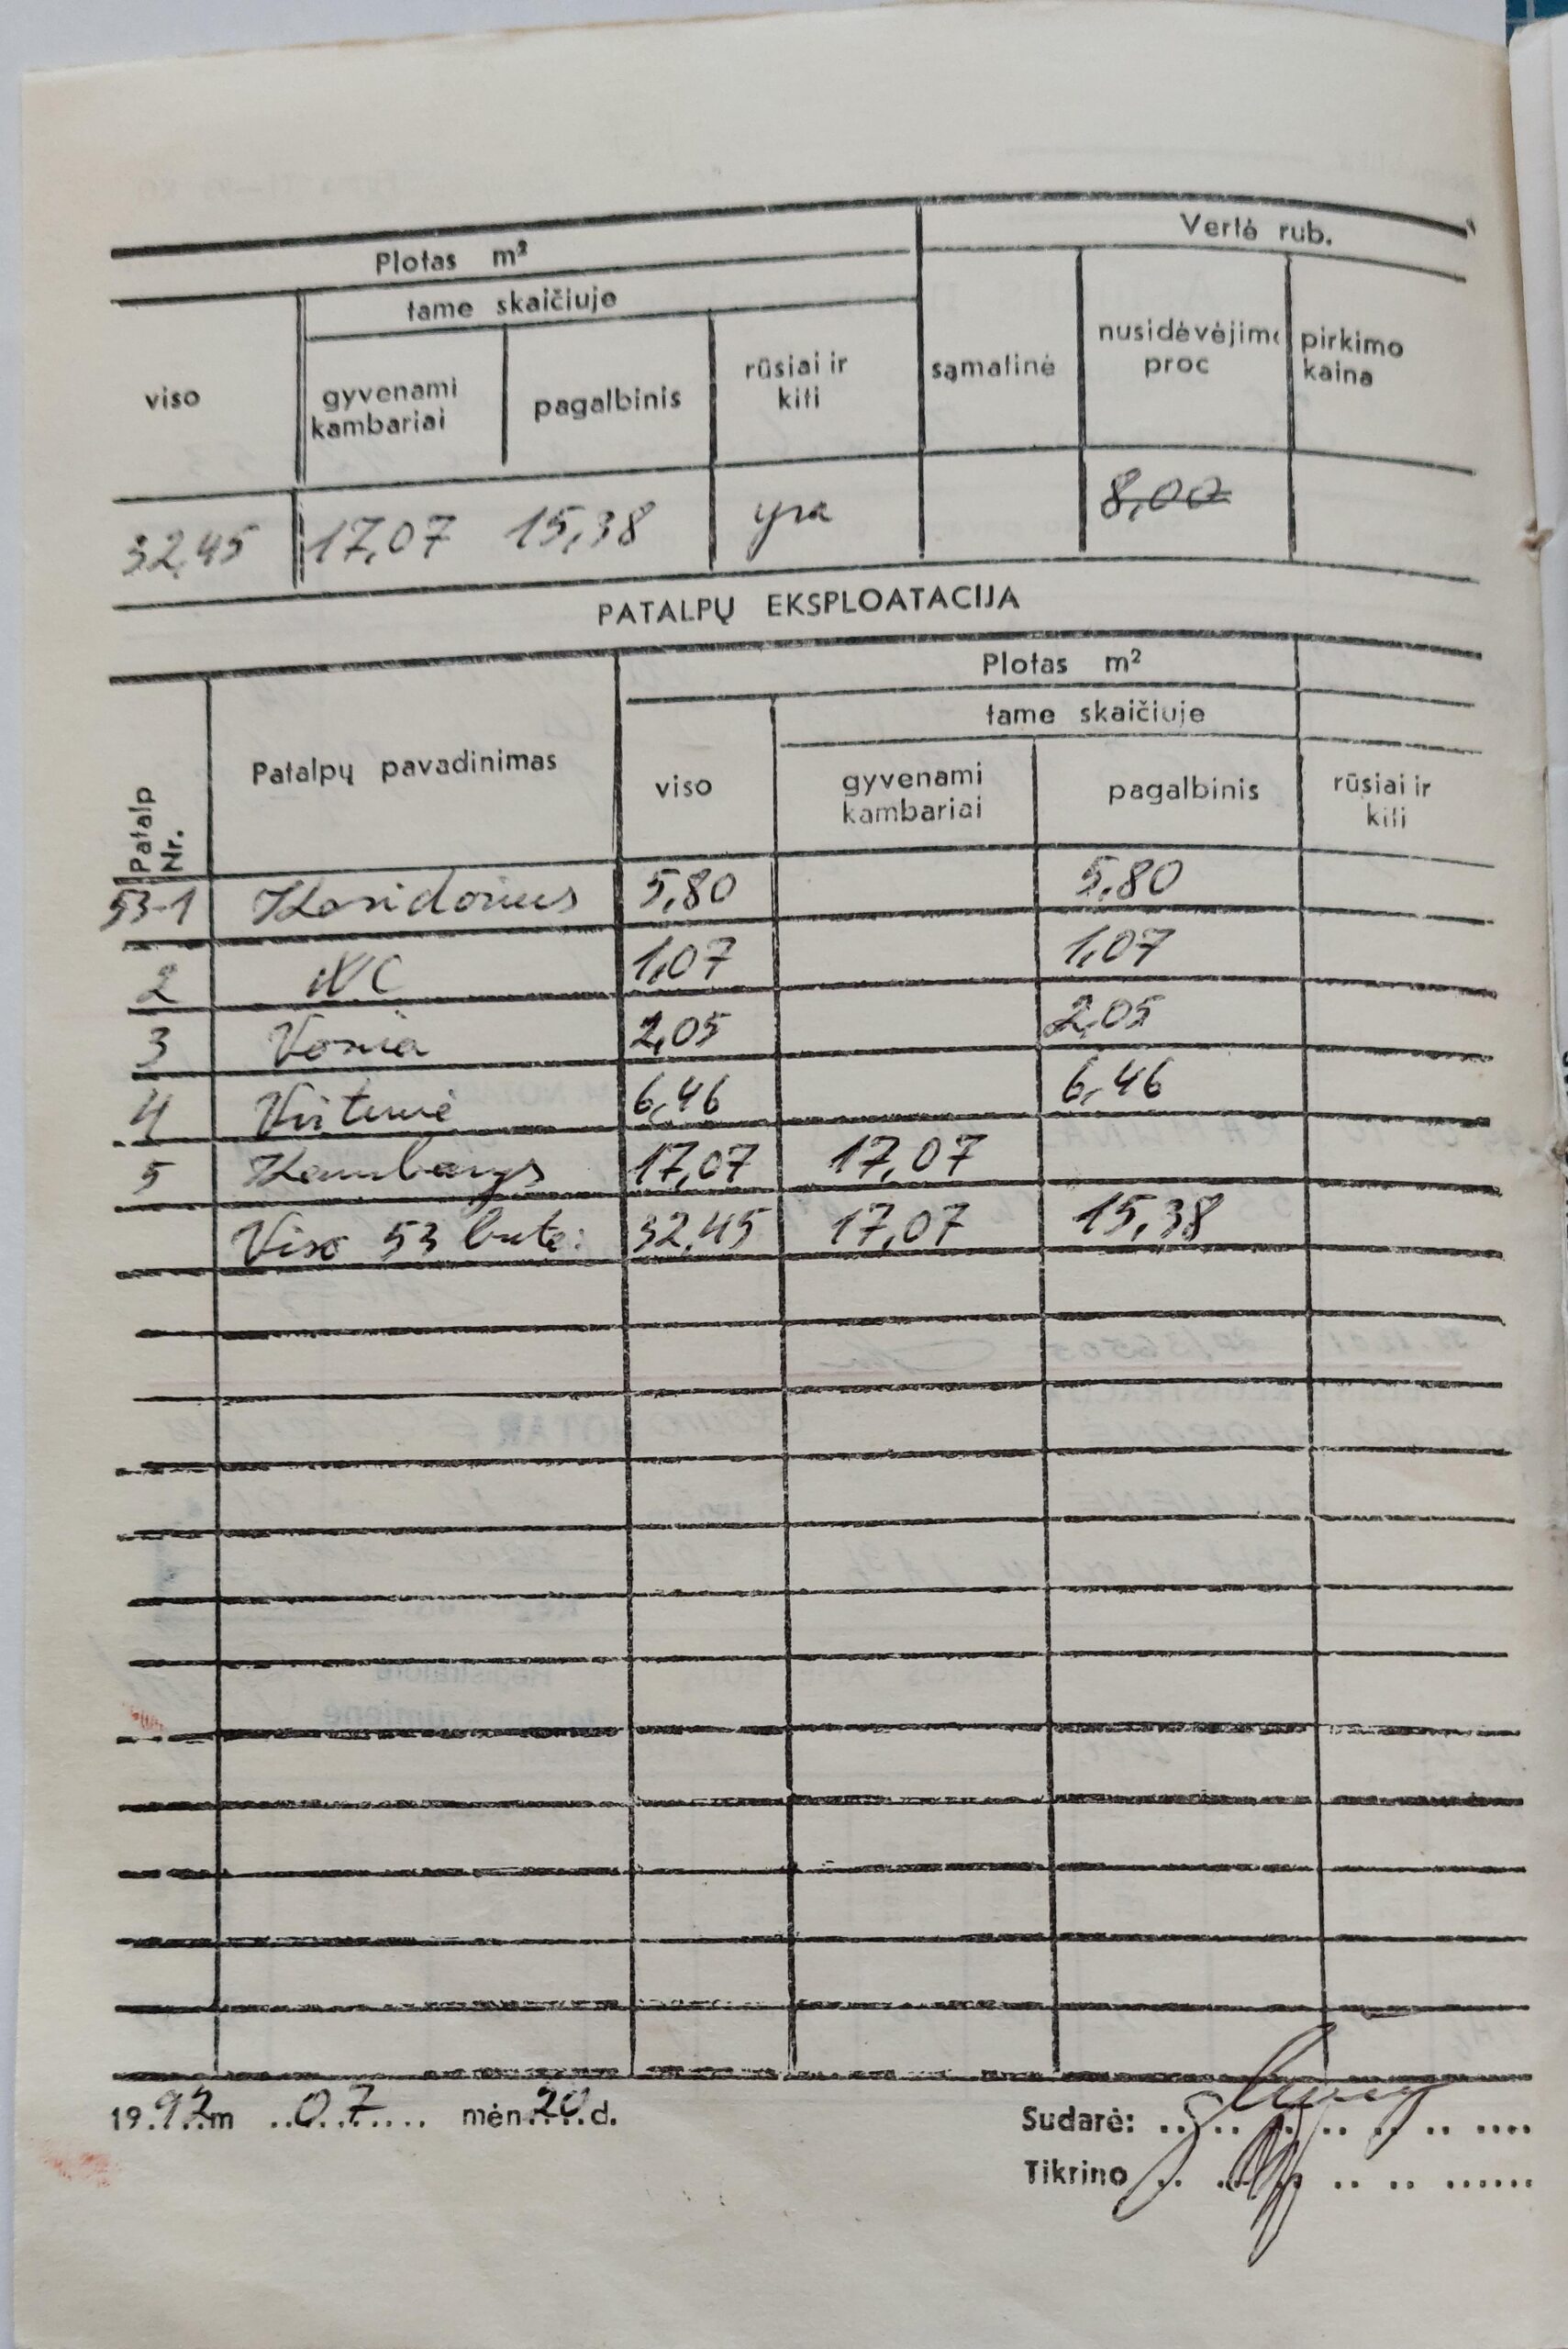 Plotas m²
Vertė rub.
tame skaičiuje
viso
gyvenami kambariai
pagalbinis
rūsiai ir kiti
sąmatinė
nusidėvėjimo proc
pirkimo kaina
32,45 17,07 15,38 yra 8,00
PATALPŲ EKSPLOATACIJA
Patalp Nr.
Patalpų pavadinimas
Plotas m²
tame skaičiuje
viso
gyvenami kambariai
pagalbinis
rūsiai ir kiti
53-1 Koridorius 5,80 5,80
2 WC 1,07 1,07
3 Vonia 2,05 2,05
4 Virtuvė 6,46 6,46
5 Kambarys 17,07 17,07
Viso 53 bute: 32,45 17,07 15,38
1992m 07 mėn 20 d.
Sudarė:
Tikrino